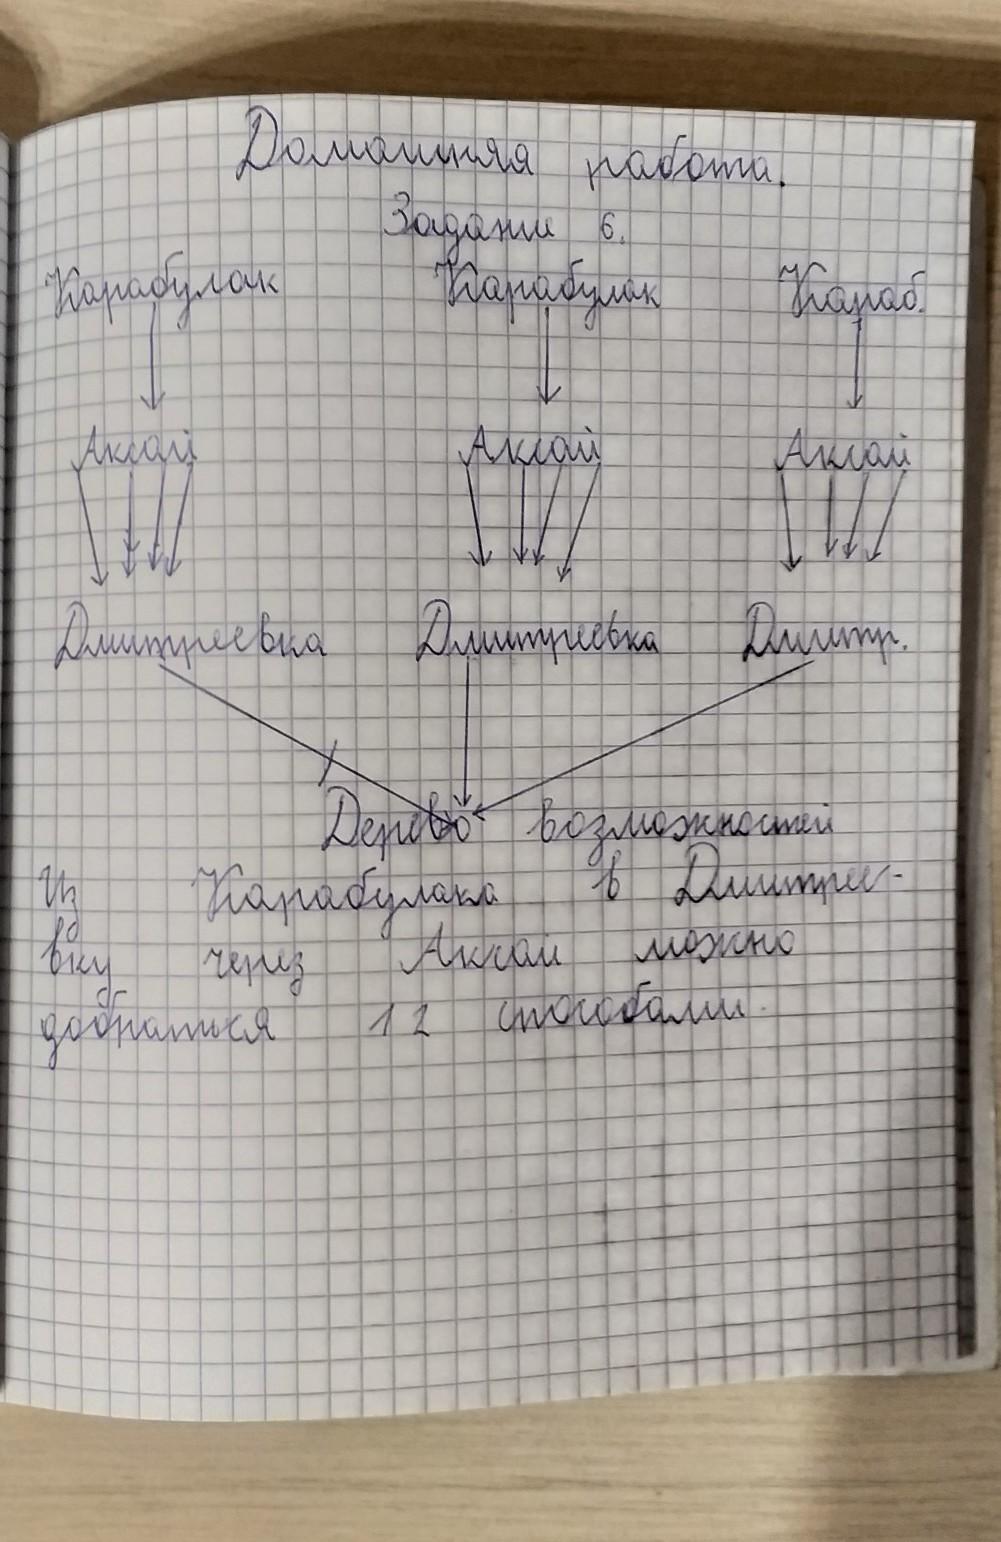 Домашняя работа.
Задание 6.
Карабулак Карабулак Караб.
Аксай Аксай Аксай
Дмитриевка Дмитриевка Дмитр.
Дерево возможностей
Из Карабулака в Дмитрие-
вку через Аксай можно
добраться 12 способами.